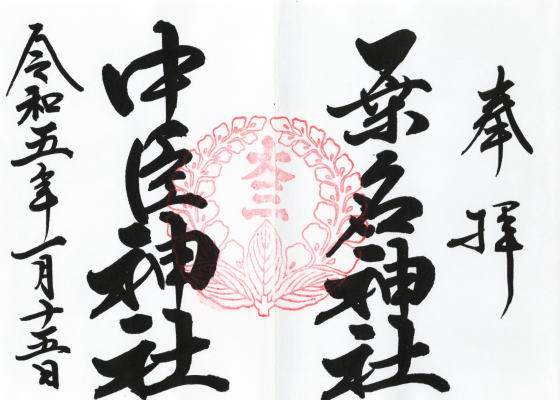 奉拝
桑名神社
中臣神社
令和五年一月十五日